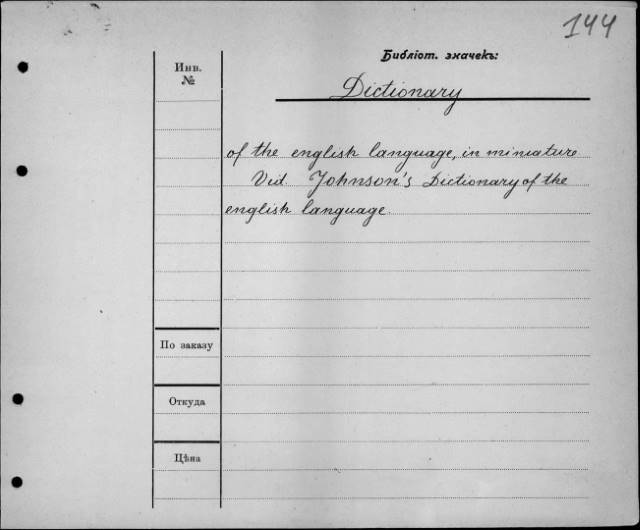 144
Библіот. значекъ:
Инв.
№
Dictionary
of the english language, in miniature
Vid. Johnson's Dictionary of the
english language.
По заказу
Откуда
Цѣна